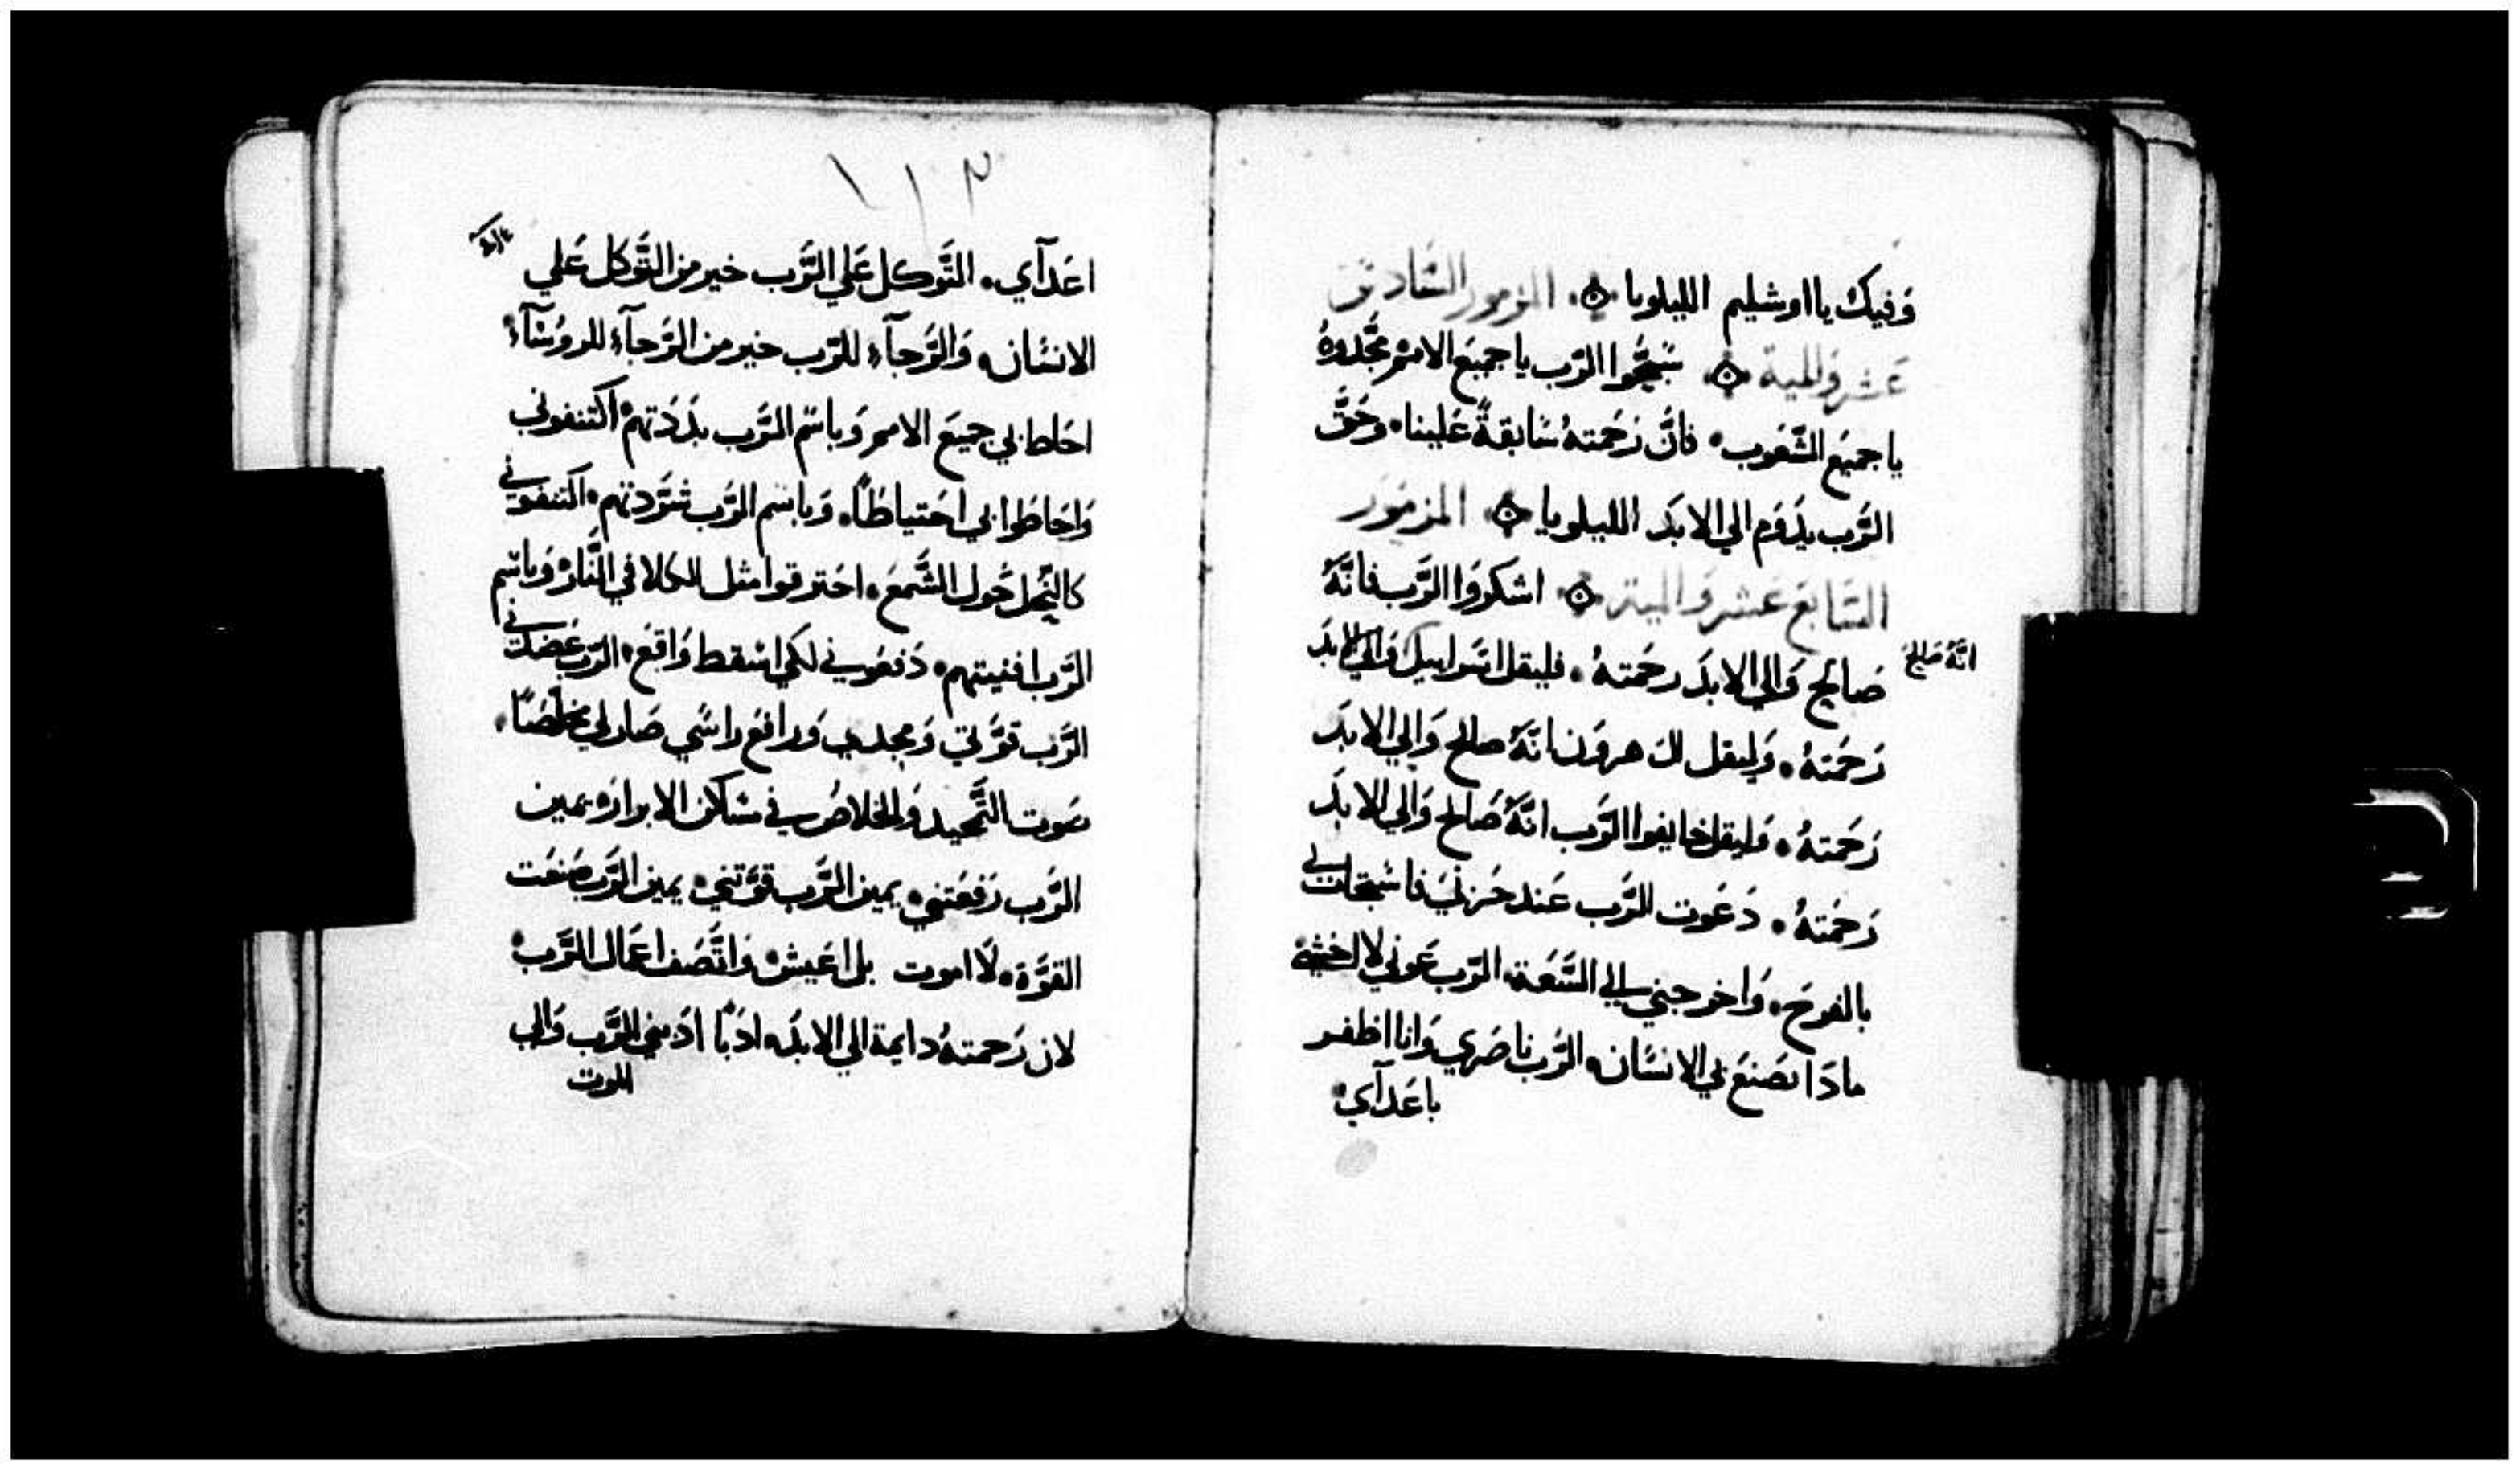 وَفيكَ يا اورشليم الليلويا المزمور السَّادس
عَشر وَالمية سَبِّحُوا الرَّب يا جميعَ الامم مَجِّدوهُ
يا جميعَ الشَّعوب فانَّ رَحمَتهُ سَابقةً عَلينا وحَقَّ
الرَّب يدَوم الي الابدَ الليلويا المزمَور
السَّابعَ عَشر وَالمية اشكروَا الرَّب فانَّهُ
صَالح وَالي الابدَ رحمَتهُ فليقل اسَراييل وَالي الابدَ
انَّهُ صَالح
رَحمَتهُ وَليقل ال هروَن انَّهُ صالح وَالي الابدَ
رَحَمتهُ وَليقل خايفوا الرَّب انَّهُ صَالح وَالي الابدَ
رَحمَتهُ دَعَوت للرَّب عَند حَزني فاستجاب لي
بالفرحَ وَاخرجني الي السَّعَة الرَّب عَوني لا اخشي
ماذَا يصَنعَ بي الانسَان الرَّب ناصَري وَانا اظفر
باعَدآي
١١٣
اعَدآي التَّوكل عَلي الرَّب خير من التَّوكل عَلي
الانسَان وَالرَّجآء للرَّب خير من الرَّجآء للروُسَآء
احَاط بي جميعَ الامم وَباسَم الرَّب بدَدَتهم اكتنفوني
وَاحَاطَوا بي احَتياطًا وَباسم الرَّب شَوَّدتهم اكتنفوني
كالنَّحل حَول الشَّمعَ احَترقوا مثل الكلا في النَّار وَباسَم
الرَّب افنيتهم دَفعَوني لكي اسَقط وَاقعَ الرَّب عَضَدني
الرَّب قوَّتي وَمجدي وَرافعَ راسَي صَار لي مخلصًا
صَوت التَّمجيد وَالخلاصَ في مسَاكن الابرار يمين
الرَّب رَفعَتني يمين الرَّب قوَّتني يمين الرَّب صَنعَت
القوَّة لَا اموت بل اعَيش وَاتَّصَف اعَمال الرَّب
لان رَحمتهُ دايمة الي الابدَ ادَبًا ادَبني الرَّب وَالي
الموت